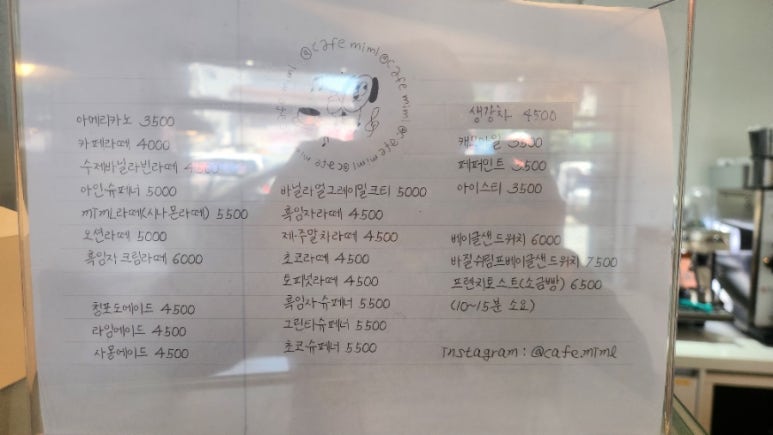 @cafe miml @cafe miml @cafe miml @cafe miml
아메리카노 3500
카페라떼 4000
수제바닐라빈라떼
아인슈페너 5000
miml라떼(시나몬라떼) 5500
오션라떼 5000
흑임자 크림라떼 6000
청포도에이드 4500
라임에이드 4500
자몽에이드 4500
바닐라얼그레이밀크티 5000
흑임자라떼 4500
제주말차라떼 4500
초코라떼 4500
토피넛라떼 4500
흑임자슈페너 5500
그린티슈페너 5500
초코슈페너 5500
생강차 4500
캐모마일 3500
페퍼민트 3500
아이스티 3500
베이글샌드위치 6000
바질쉬림프베이글샌드위치 7500
프렌치토스트(소금빵) 6500
(10~15분 소요)
instagram : @cafe.miml